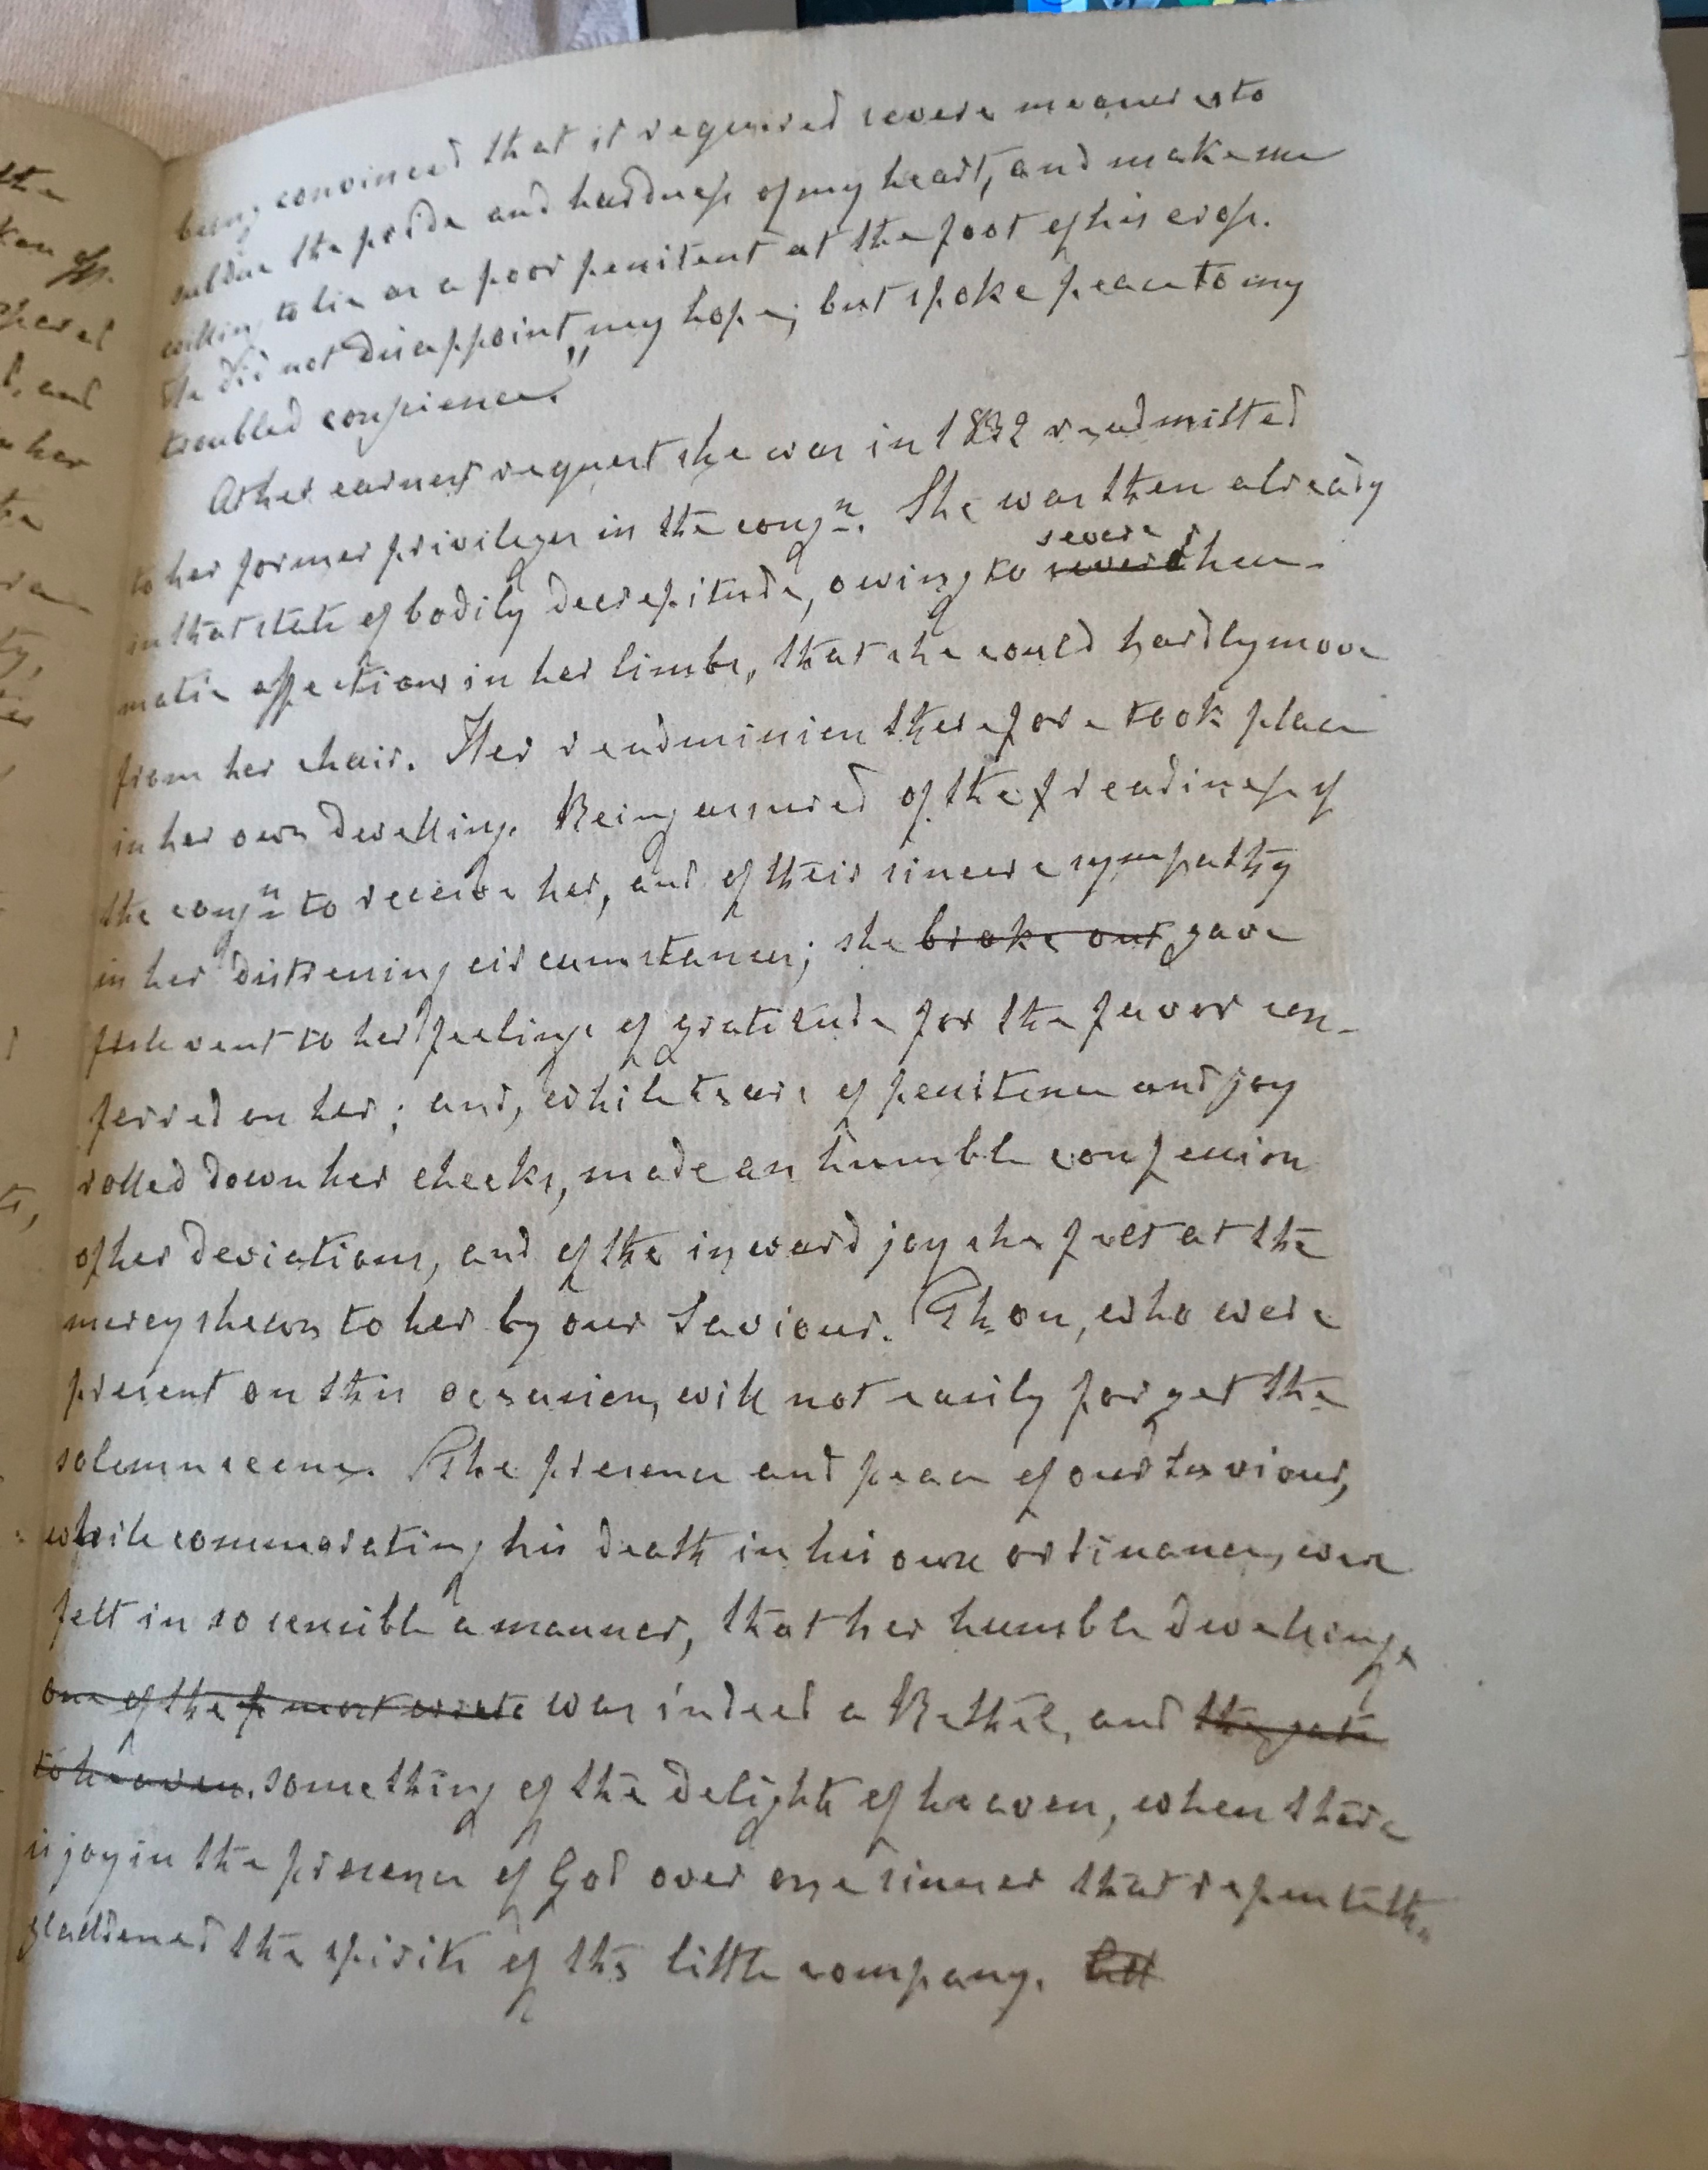 being convinced that it required severe measures to
subdue the pride and hardness of my heart, and make me
willing to lie as a poor penitent at the foot of his cross.
He did not disappoint my hope; but spoke peace to my
troubled conscience."
At her earnest request she was in 1832 readmitted
to her former privileges in the congn. She was then already
in that state of bodily decrepitude, owing to severe rheu-
matic affections in her limbs, that she could hardly move
from her chair. Her readmission therefore took place
in her own dwelling. Being assured of the readiness of
the congn to receive her, and of their sincere sympathy
in her distressing circumstances; she broke out gave
vent to her feelings of gratitude for the favor con-
ferred on her; and, while tears of penitence and joy
rolled down her cheeks, made an humble confession
of her deviations, and of the inward joy she felt at the
mercy shewn to her by our Saviour. Thou, who were
present on this occasion, will not easily forget the
solemn scene. The presence and peace of our Saviour,
while commorating his death in his own ordinance, were
felt in so sensible a manner, that her humble dwelling,
one of the most was indeed a Bethel, and the gate
to heaven. something of the delights of heaven, when there
is joy in the presence of God over one sinner that repenteth,
gladdened the spirits of the little company.
the
ken off.
and
her
the